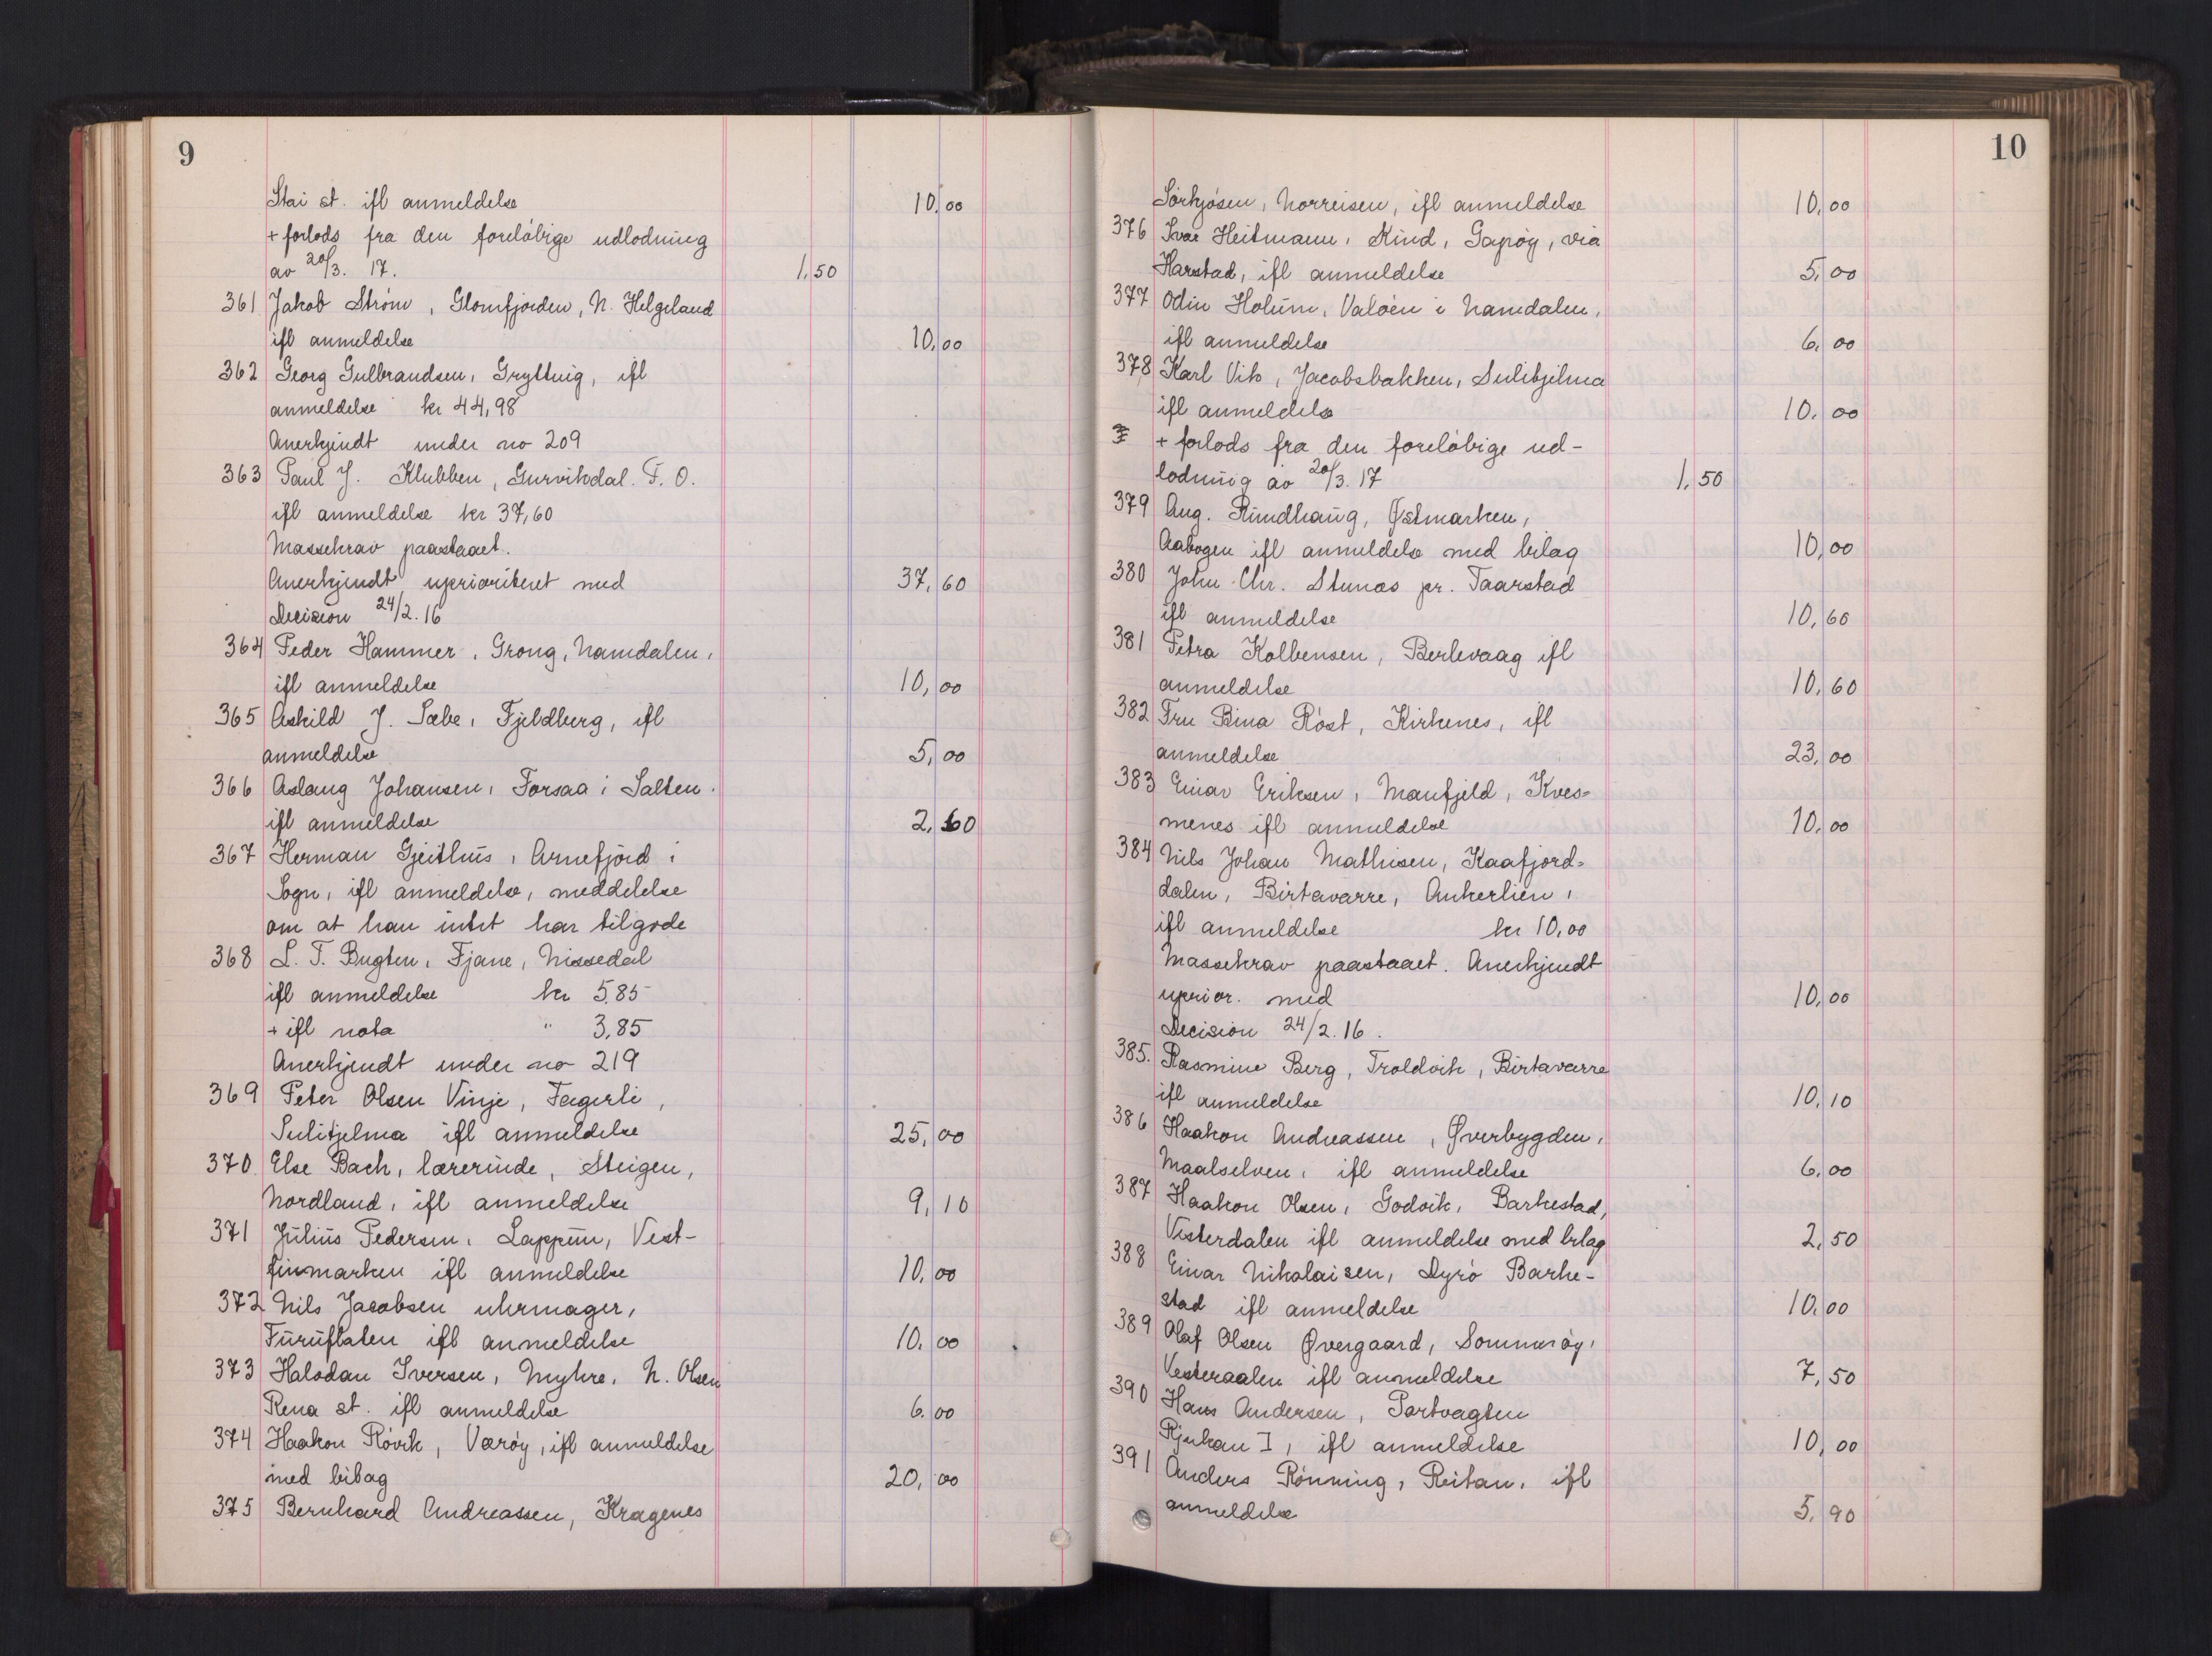 9
Stai st. ifl anmeldelse 10,00
+ forlods fra den foreløbige udlodning
av 20/3. 17. 1,50
361 Jakob Strøm, Glomfjorden, N. Helgeland
ifl anmeldelse 10,00
362 Georg Gulbrandsen, Gryttuig, ifl
anmeldelse kr 44,98
Anerkjendt under no 209
363 Paul J. Klubben, Gurvikdal. F. O.
ifl anmeldelse kr 37,60
Massekrav paastaaet.
Anerkjendt uprioriteret med 37,60
Decision 24/2. 16
364 Peder Hammer, Grong, Namdalen,
ifl anmeldelse 10,00
365 Askild J. Sæbe, Fjeldberg, ifl
anmeldelse 5,00
366 Aslaug Johansen, Forsaa i Salten.
ifl anmeldelse 2,60
367 Herman Gjeithus, Arnefjord i
Sogn, ifl anmeldelse, meddelelse
om at han intet har tilgode
368 L. T. Bugten, Fjane, Nissedal
ifl anmeldelse kr 5,85
+ ifl nota " 3,85
Anerkjendt under no 219
369 Peter Olsen Vinje, Fagerli,
Sulitjelma ifl anmeldelse 25,00
370 Else Bach, lærerinde, Steigen,
Nordland, ifl anmeldelse 9,10
371 Julius Pedersen, Lappun, Vest-
finmarken ifl anmeldelse 10,00
372 Nils Jacobsen uhrmager,
Furuflaten ifl anmeldelse 10,00
373 Halvdan Iversen, Myhre, N. Olsen
Rena st. ifl anmeldelse 6,00
374 Haakon Røvik, Værøy, ifl anmeldelse
med bilag 20,00
375 Bernhard Andreassen, Kragenes
10
Sørkjosen, Norreisen, ifl anmeldelse 10,00
376 Ivar Heitmann, Kind, Gapøy, via
Harstad, ifl anmeldelse 5,00
377 Odin Holum, Valøen i Namdalen,
ifl anmeldelse 6,00
378 Karl Vik, Jacobsbakken, Sulitjelma
ifl anmeldelse 10,00
+ forlods fra den foreløbige ud-
lodning av 20/3. 17 1,50
379 Aug. Rundhaug, Østmarken,
Aabogen ifl anmeldelse med bilag 10,00
380 John Chr. Stunæs pr. Taarstad
ifl anmeldelse 10,60
381 Petra Kolbensen, Berlevaag ifl
anmeldelse 10,60
382 Fru Bina Røst, Kirkenes, ifl
anmeldelse 23,00
383 Einar Eriksen, Manfjeld, Kves-
menes ifl anmeldelse 10,00
384 Nils Johan Mathisen, Kaafjord-
dalen, Birtavarre, Ankerlien,
ifl anmeldelse kr 10,00
Massekrav paastaaet. Anerkjendt
uprior. med 10,00
Decision 24/2. 16.
385. Rasmine Berg, Troldvik, Birtavarre
ifl anmeldelse 10,10
386 Haakon Andreassen, Øverbygden,
Maalselven, ifl anmeldelse 6,00
387 Haakon Olsen, Godvik, Barkestad,
Vesterdalen ifl anmeldelse med bilag 2,50
388 Einar Nikolaisen, Dyrø Barke-
stad ifl anmeldelse 10,00
389 Olaf Olsen Øvergaard, Sommerøy,
Vesteraalen ifl anmeldelse 7,50
390 Hans Andersen, Portvagten
Rjukan I, ifl anmeldelse 10,00
391 Anders Rønning, Reitan, ifl
anmeldelse 5,90